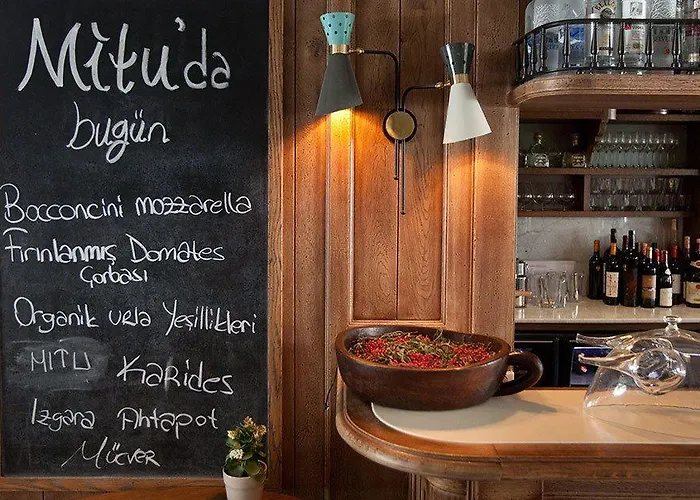 Mitu'da
bugün
Bocconcini mozzarella
Fırınlanmış Domates
Çorbası
Organik urla Yeşillikleri
MITU Karides
Izgara Ahtapot
Mücver